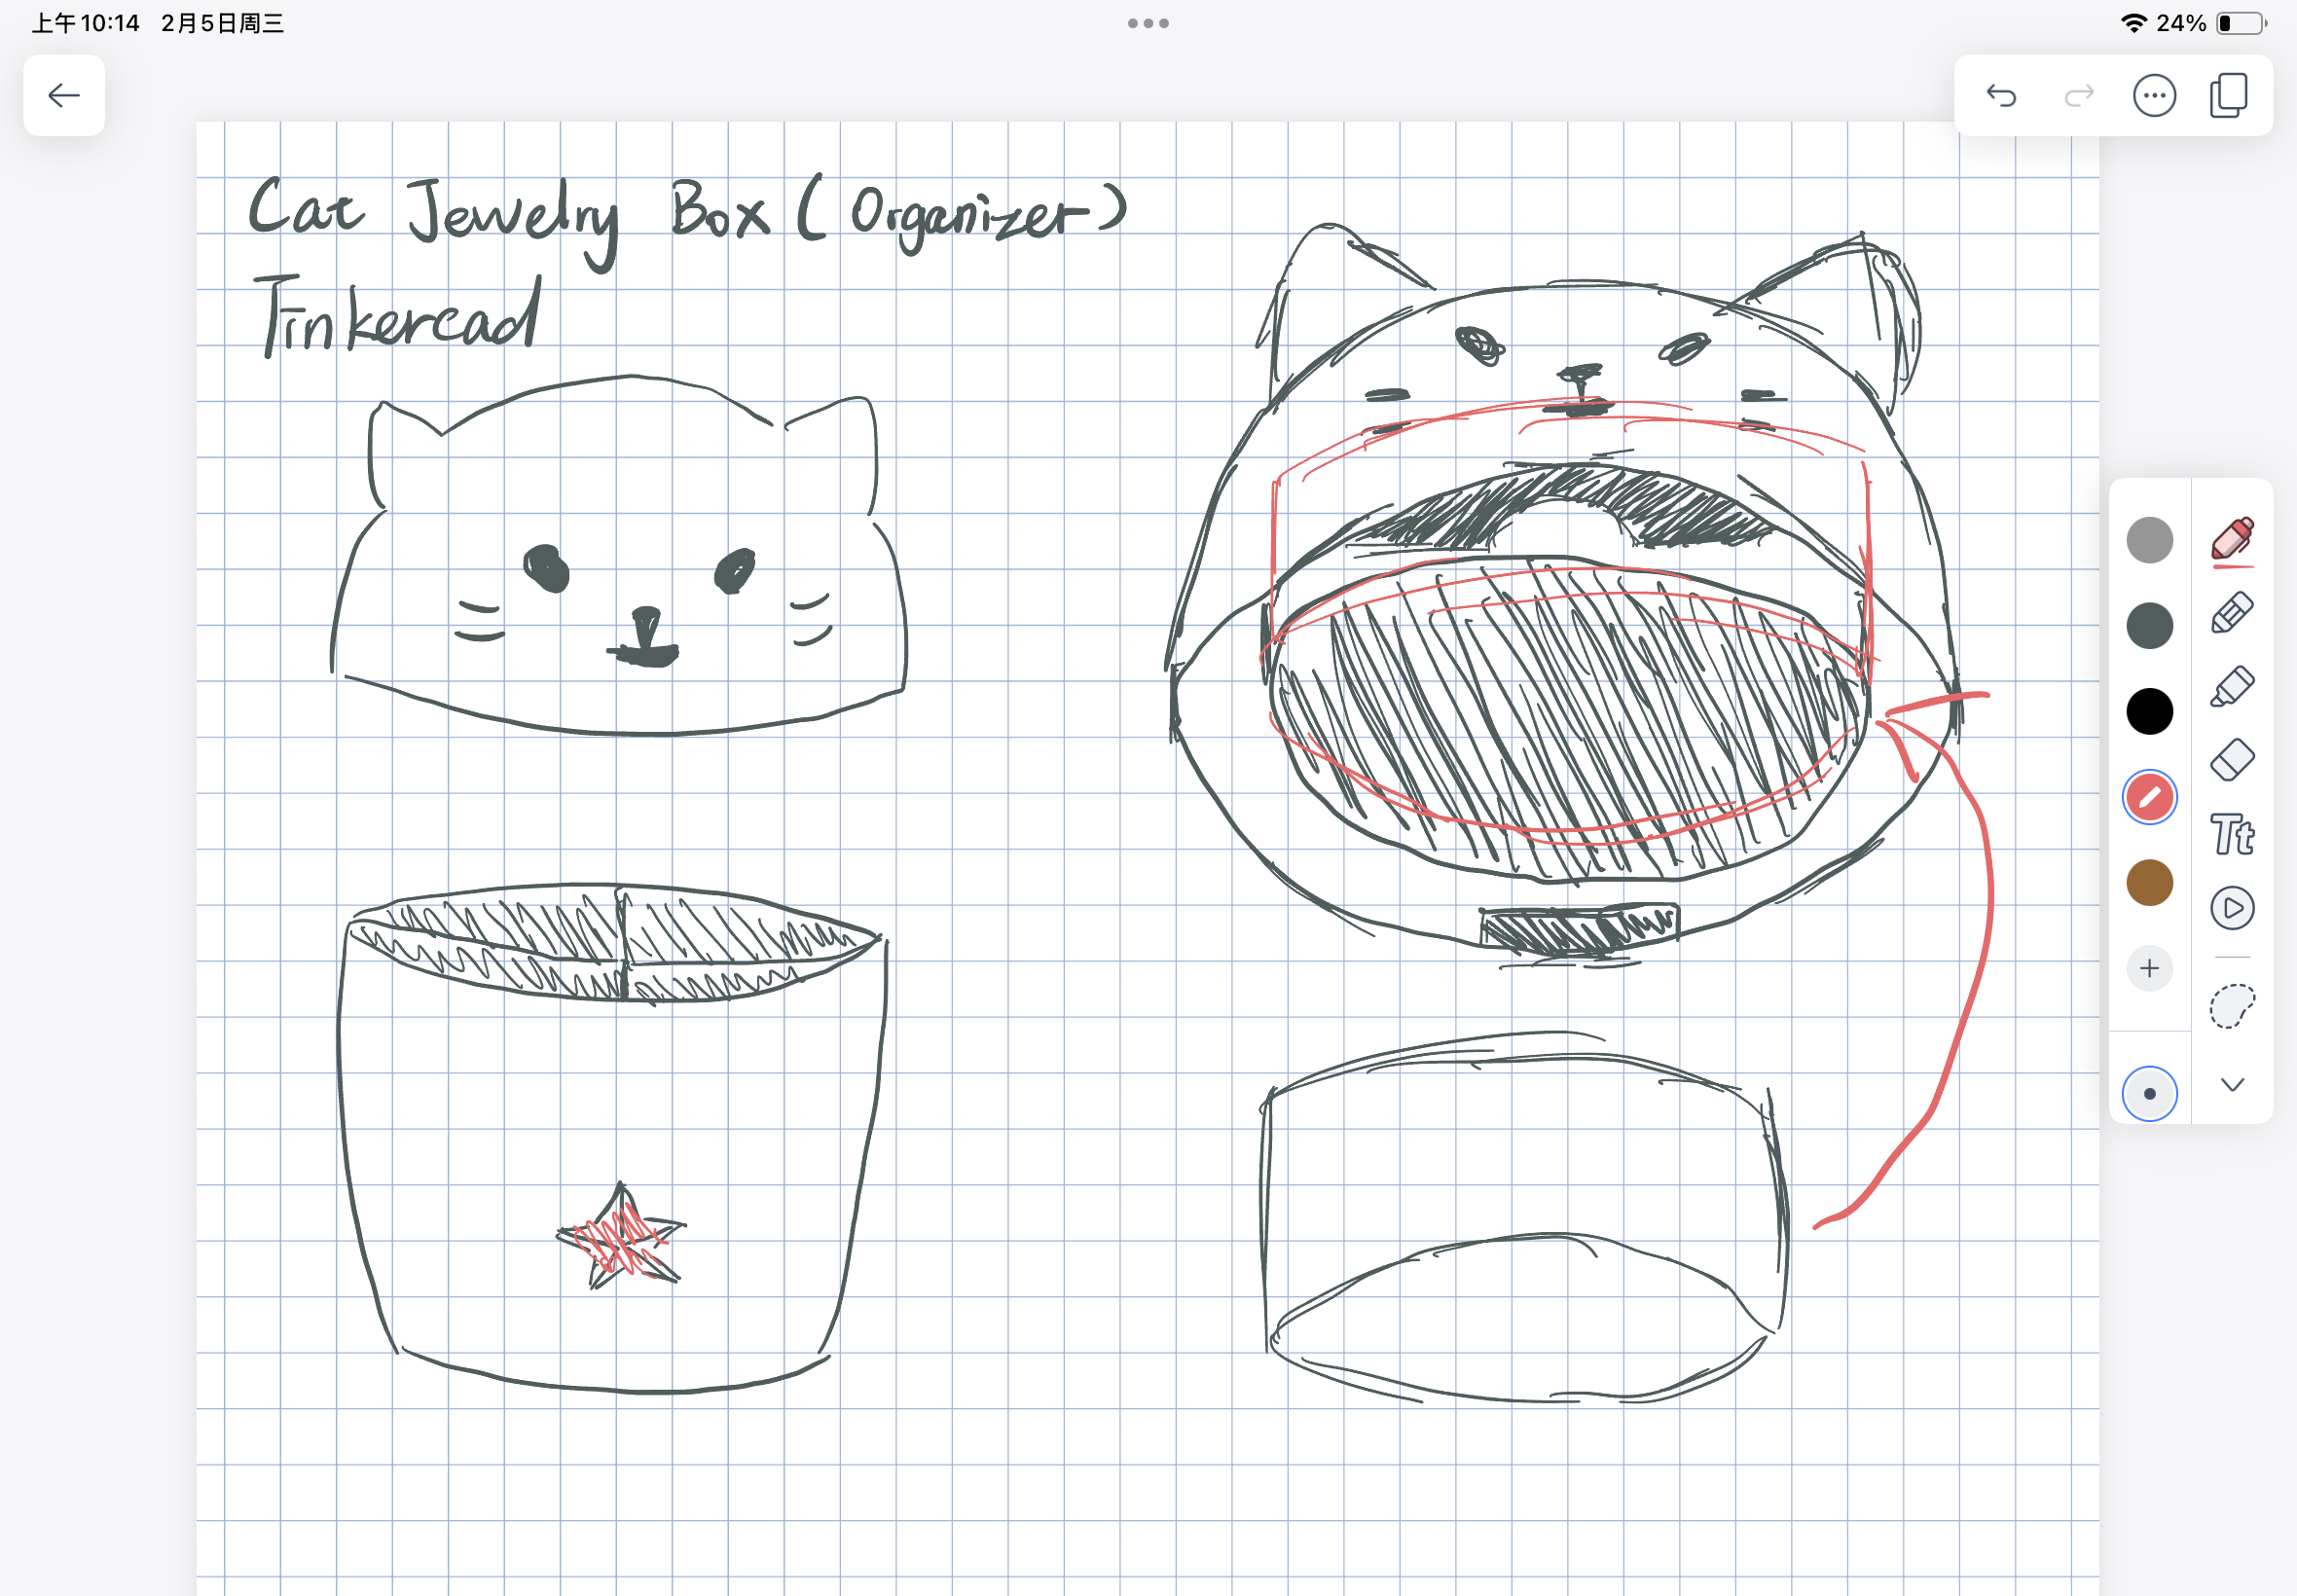 上午10:14 2月5日周三
24%
Cat Jewelry Box (Organizer)
Tinkercad
Tt